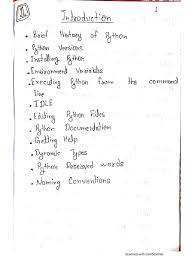 1
Introduction
• Brief History of Python
• Python Versions
• Installing Python
• Environment Variables
• Executing Python from the command
line
• IDLE
• Editing Python Files
• Python Documentation
• Getting Help
• Dynamic Types
• Python Reserved words
• Naming Conventions
Scanned with CamScanner